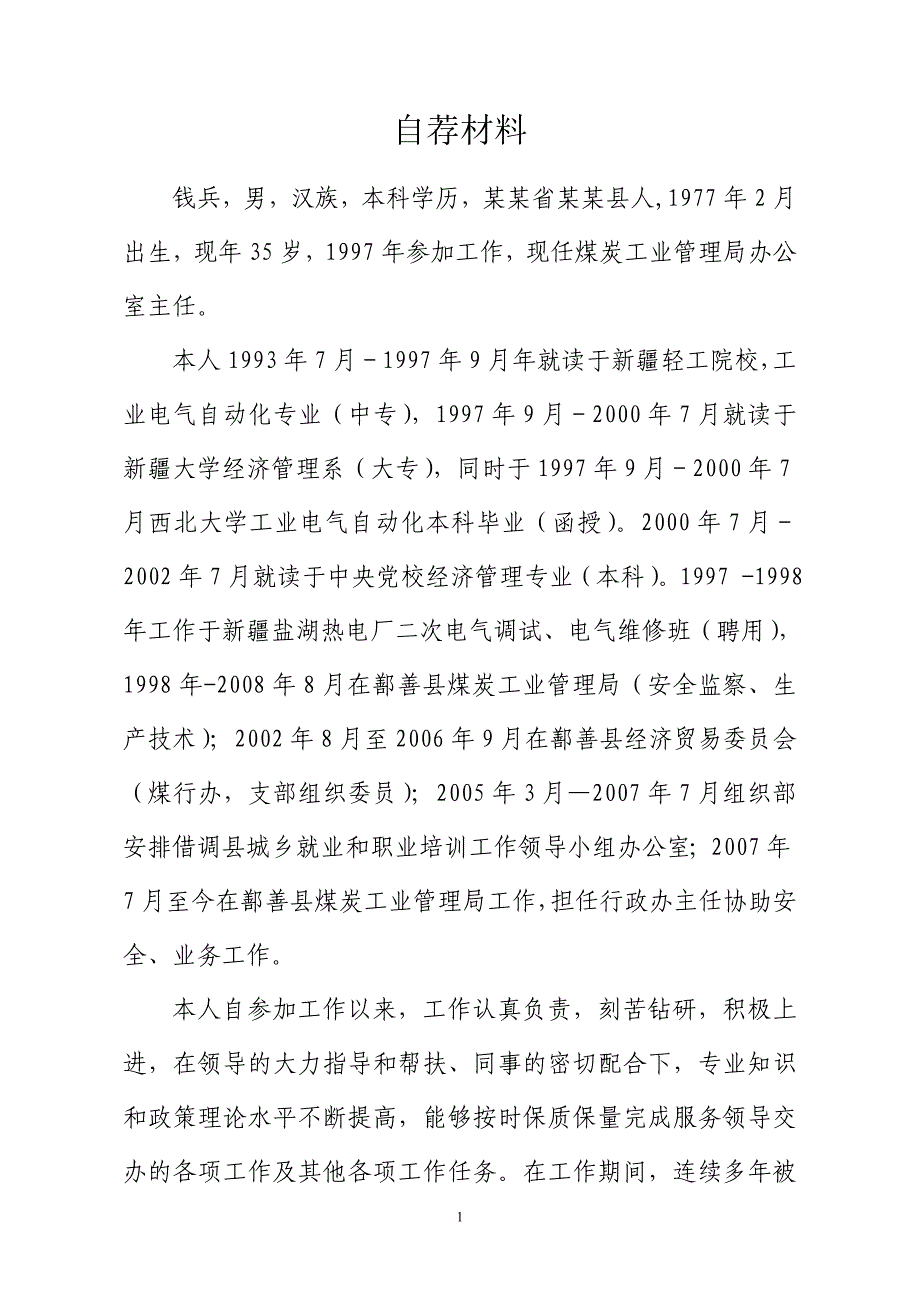 自荐材料
钱兵，男，汉族，本科学历，某某省某某县人,1977年2月
出生，现年35岁，1997年参加工作，现任煤炭工业管理局办公
室主任。
本人1993年7月－1997年9月年就读于新疆轻工院校,工
业电气自动化专业（中专），1997年9月－2000年7月就读于
新疆大学经济管理系（大专），同时于1997年9月－2000年7
月西北大学工业电气自动化本科毕业（函授）。2000年7月－
2002年7月就读于中央党校经济管理专业（本科）。1997 -1998
年工作于新疆盐湖热电厂二次电气调试、电气维修班（聘用），
1998年-2008年8月在鄯善县煤炭工业管理局（安全监察、生
产技术）；2002年8月至2006年9月在鄯善县经济贸易委员会
（煤行办，支部组织委员）；2005年3月—2007年7月组织部
安排借调县城乡就业和职业培训工作领导小组办公室；2007年
7月至今在鄯善县煤炭工业管理局工作,担任行政办主任协助安
全、业务工作。
本人自参加工作以来，工作认真负责，刻苦钻研，积极上
进，在领导的大力指导和帮扶、同事的密切配合下，专业知识
和政策理论水平不断提高，能够按时保质保量完成服务领导交
办的各项工作及其他各项工作任务。在工作期间，连续多年被
1